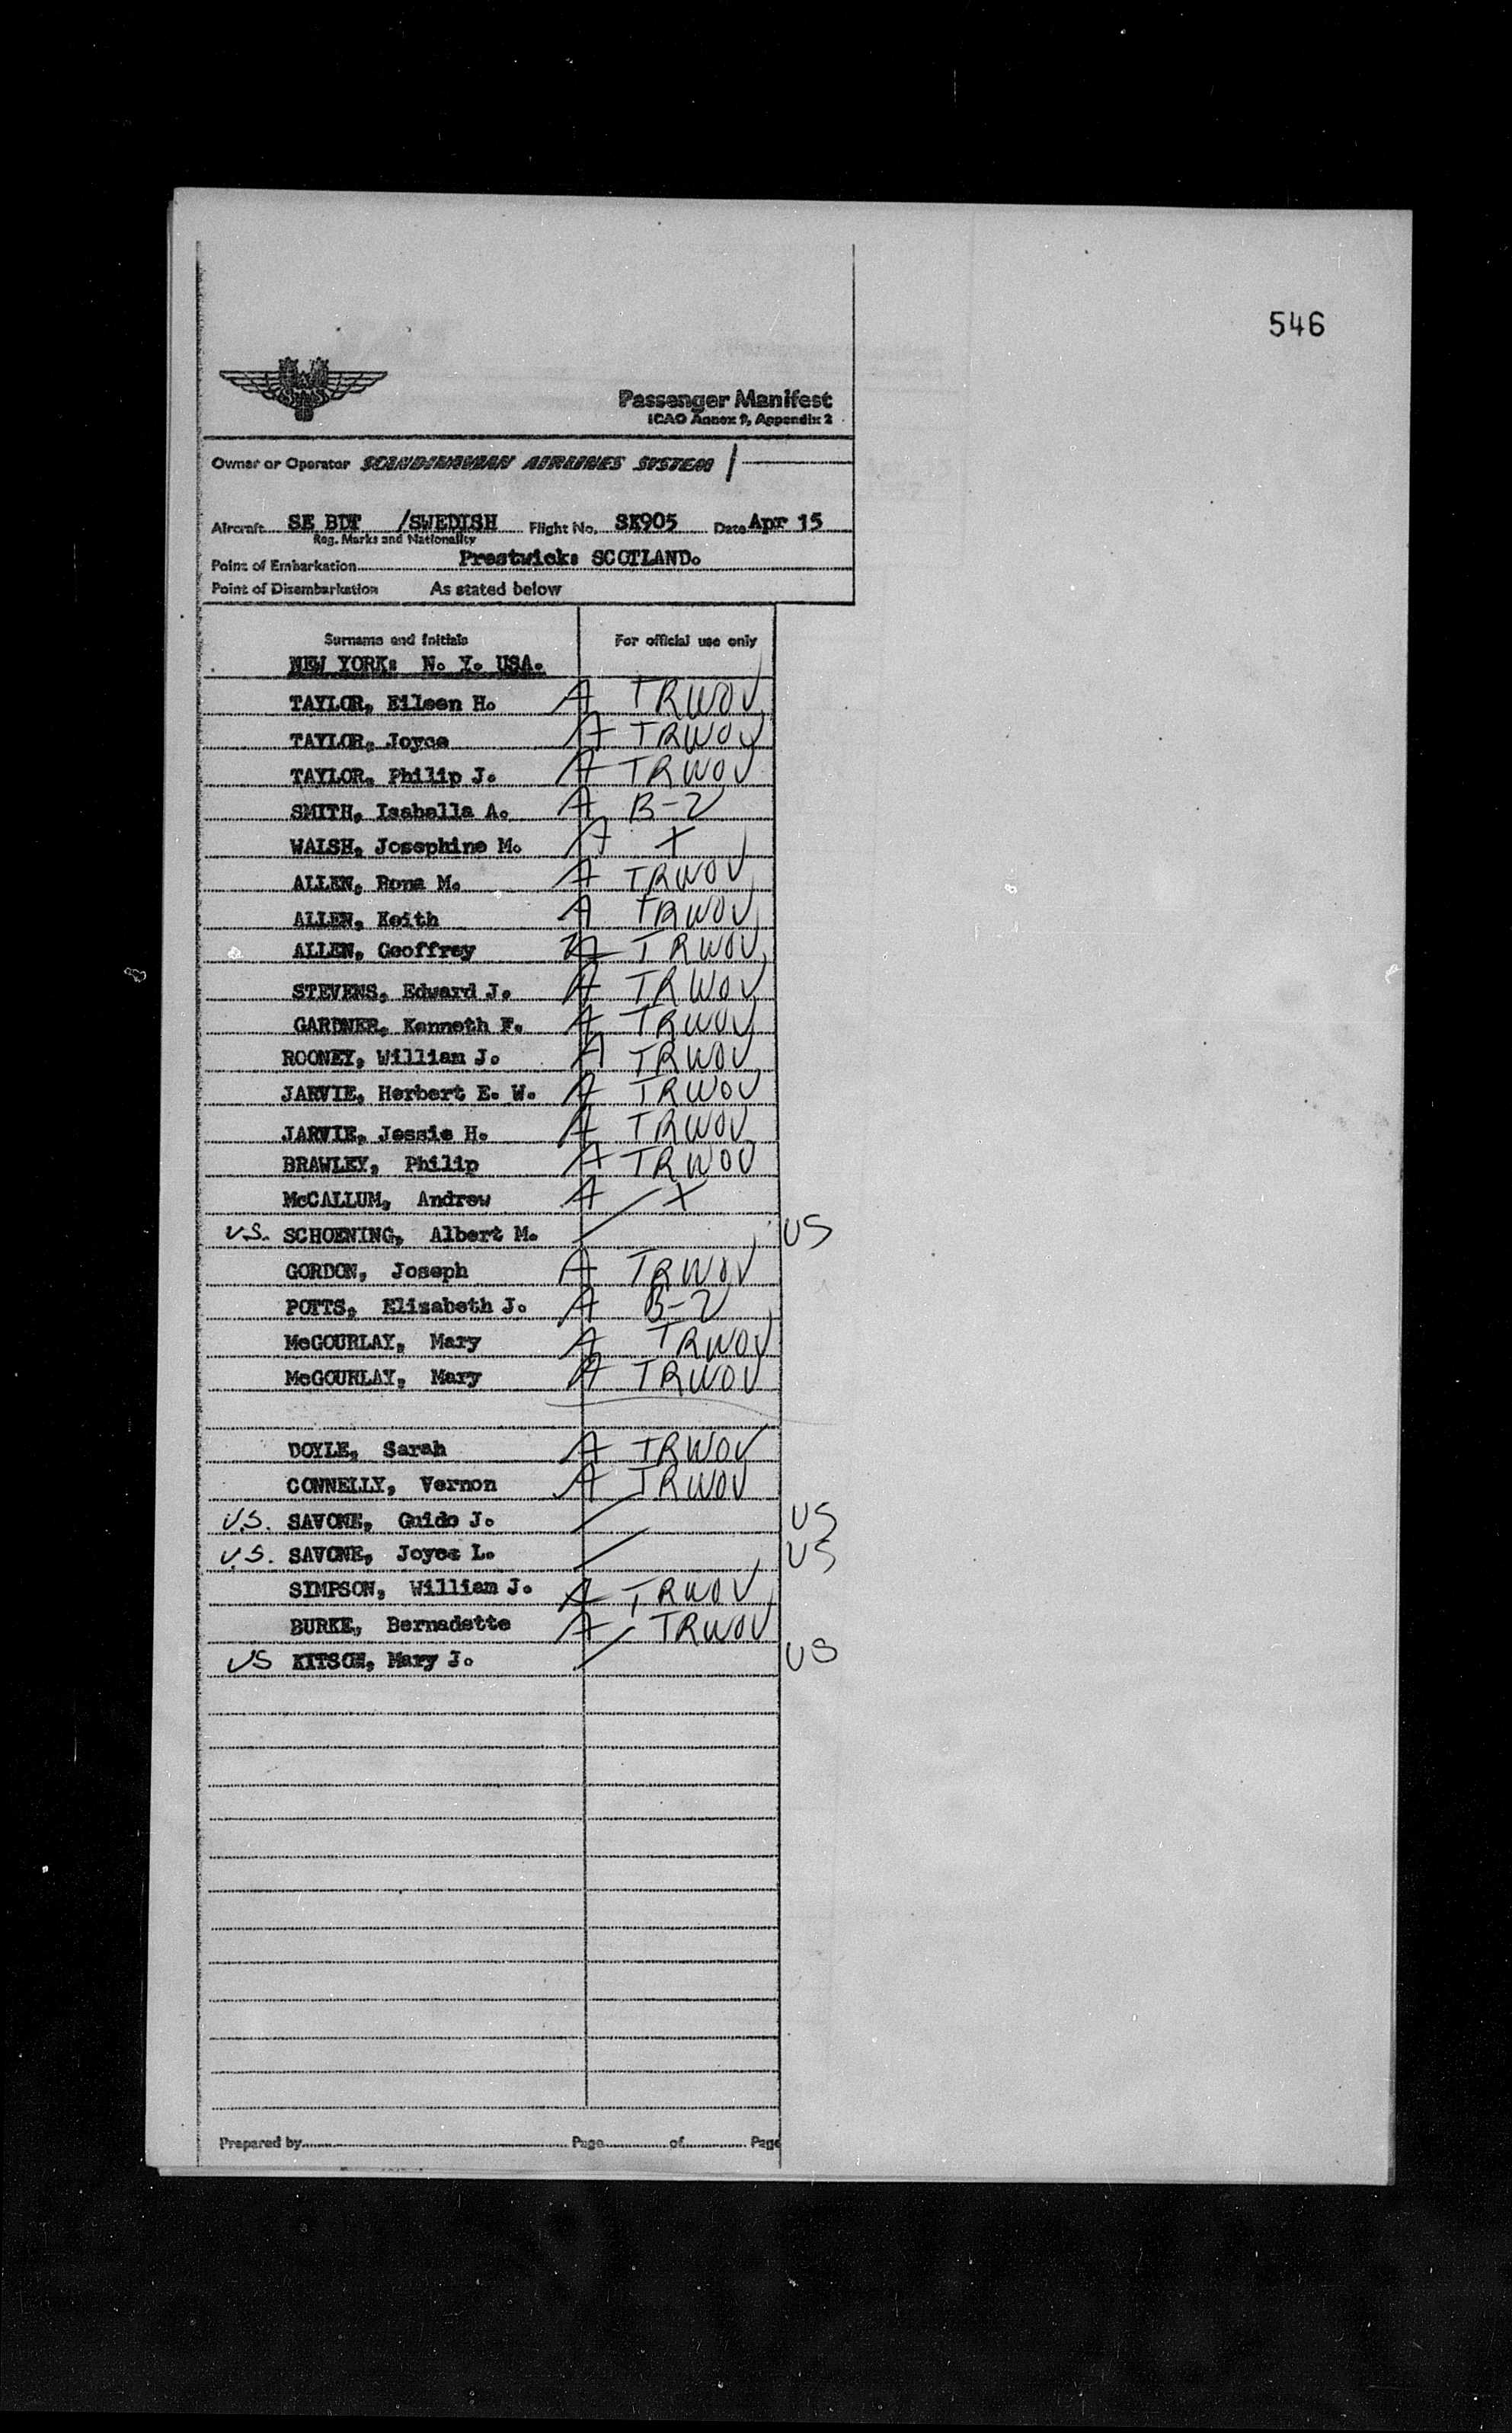 546
SAS
Passenger Manifest
ICAO Annex 9, Appendix 2
Owner or Operator SCANDINAVIAN AIRLINES SYSTEM
Aircraft SE BDT /SWEDISH Flight No. SK905 Date Apr 15
Reg. Marks and Nationality
Point of Embarkation Prestwick: SCOTLAND.
Point of Disembarkation As stated below
Surname and Initials For official use only
NEW YORK: N. Y. USA.
TAYLOR, Eileen H. A TRWOV
TAYLOR, Joyce A TRWOV
TAYLOR, Philip J. A TRWOV
SMITH, Isabella A. A B-2
WALSH, Josephine M. A X
ALLEN, Rona M. A TRWOV
ALLEN, Keith A TRWOV
ALLEN, Geoffrey A TRWOV
STEVENS, Edward J. A TRWOV
GARDNER, Kenneth F. A TRWOV
ROONEY, William J. A TRWOV
JARVIE, Herbert E. W. A TRWOV
JARVIE, Jessie H. A TRWOV
BRAWLEY, Philip A TRWOV
McCALLUM, Andrew A X
U.S. SCHOENING, Albert M. / US
GORDON, Joseph A TRWOV
POTTS, Elizabeth J. A B-2
McGOURLAY, Mary A TRWOV
McGOURLAY, Mary A TRWOV
DOYLE, Sarah A TRWOV
CONNELLY, Vernon A TRWOV
U.S. SAVONE, Guido J. / US
U.S. SAVONE, Joyce L. / US
SIMPSON, William J. A TRWOV
BURKE, Bernadette A TRWOV
US KITSON, Mary J. / US
Prepared by Page of Page